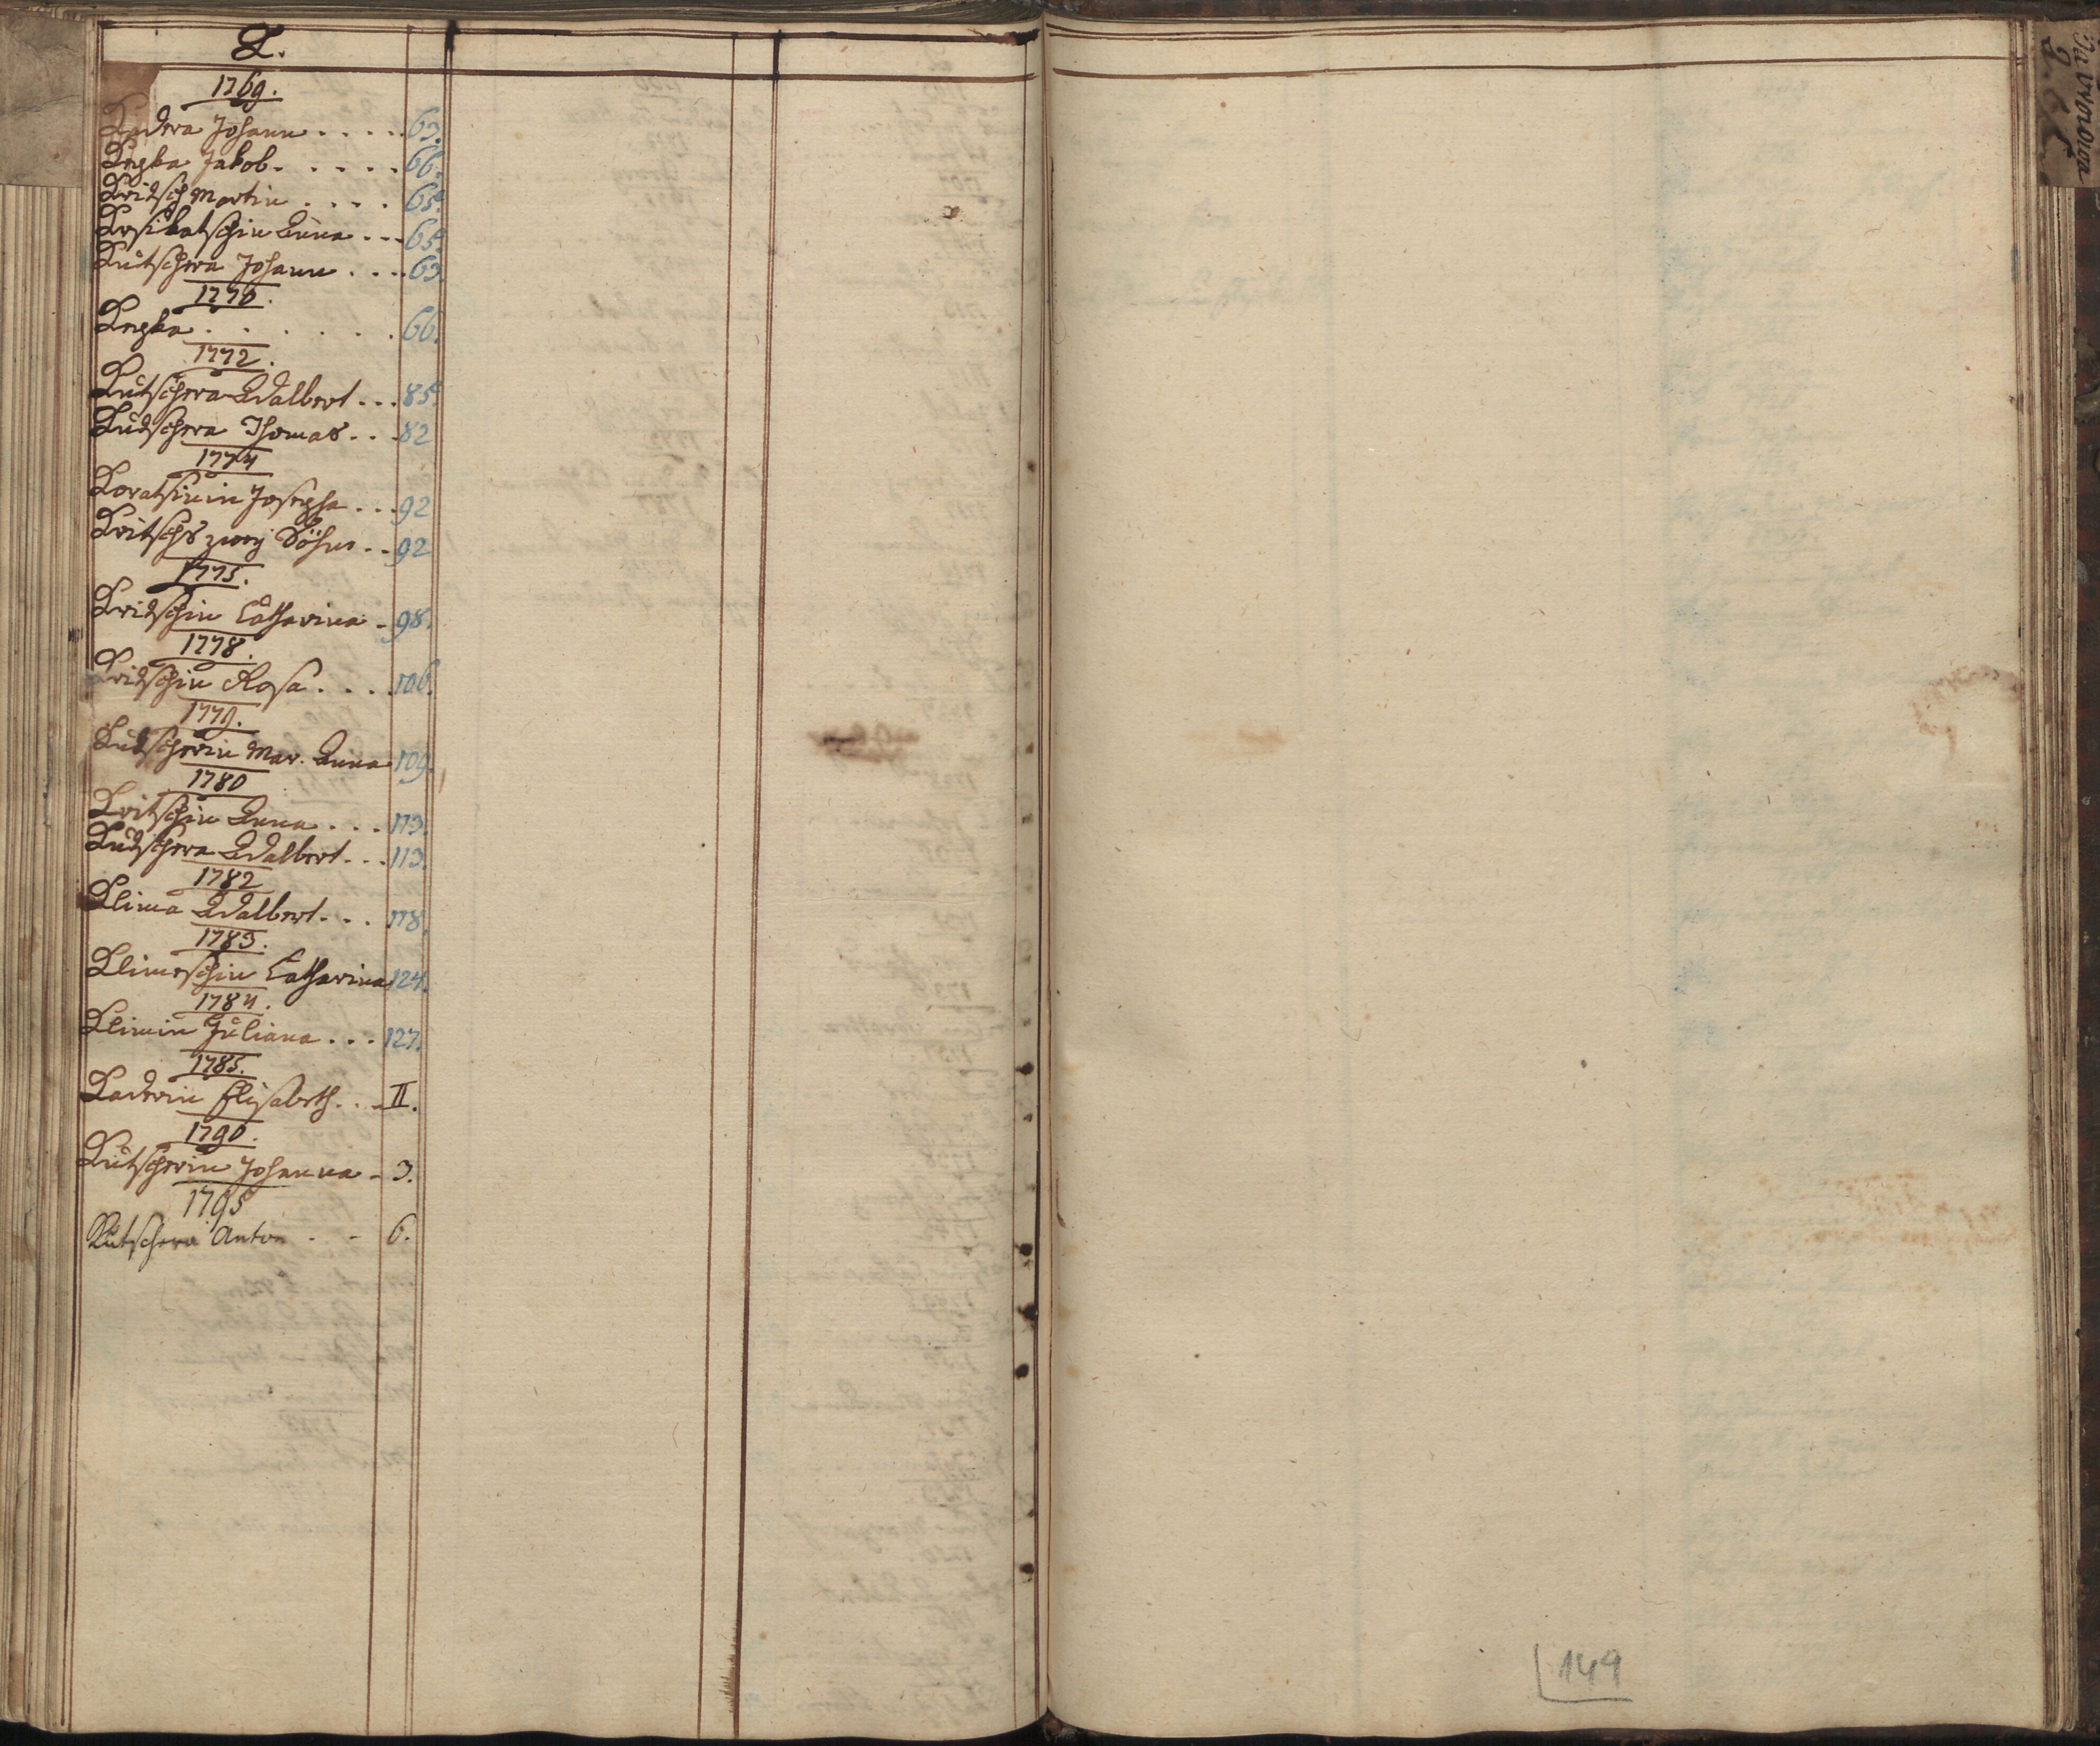 K.
1769.
Kudera Johann . . . . . 63.
Krzka Jakob . . . . . 66.
Kritsch Martin . . . . 65.
Kosikatschin Anna . . . 65.
Kutschera Johann . . . 63.
1770.
Krzka . . . . . . 66.
1772.
Kutschera Adalbert . . . 85.
Kudschera Thomas . . . 82
1774
Josepha . . . 92
Kritschs zwey Söhne . . 92
1775.
Kridschin Catharina - 98.
1778.
Kridschin Rosa . . . . 106.
1779.
Kudscherin Mar. Anna 109.
1780
Kritschin Anna . . . 113.
Kudschera Adalbert . . . 113.
1782
Klima Adalbert . . . 118.
1783.
Klimeschin Catharina 124.
1784.
Klimin Juliana . . . 127.
1785.
Kaderin Elisabeth . . . II.
1790.
Kutscherin Johanna - 3.
1795
Kutschera Anton - - 6.
149